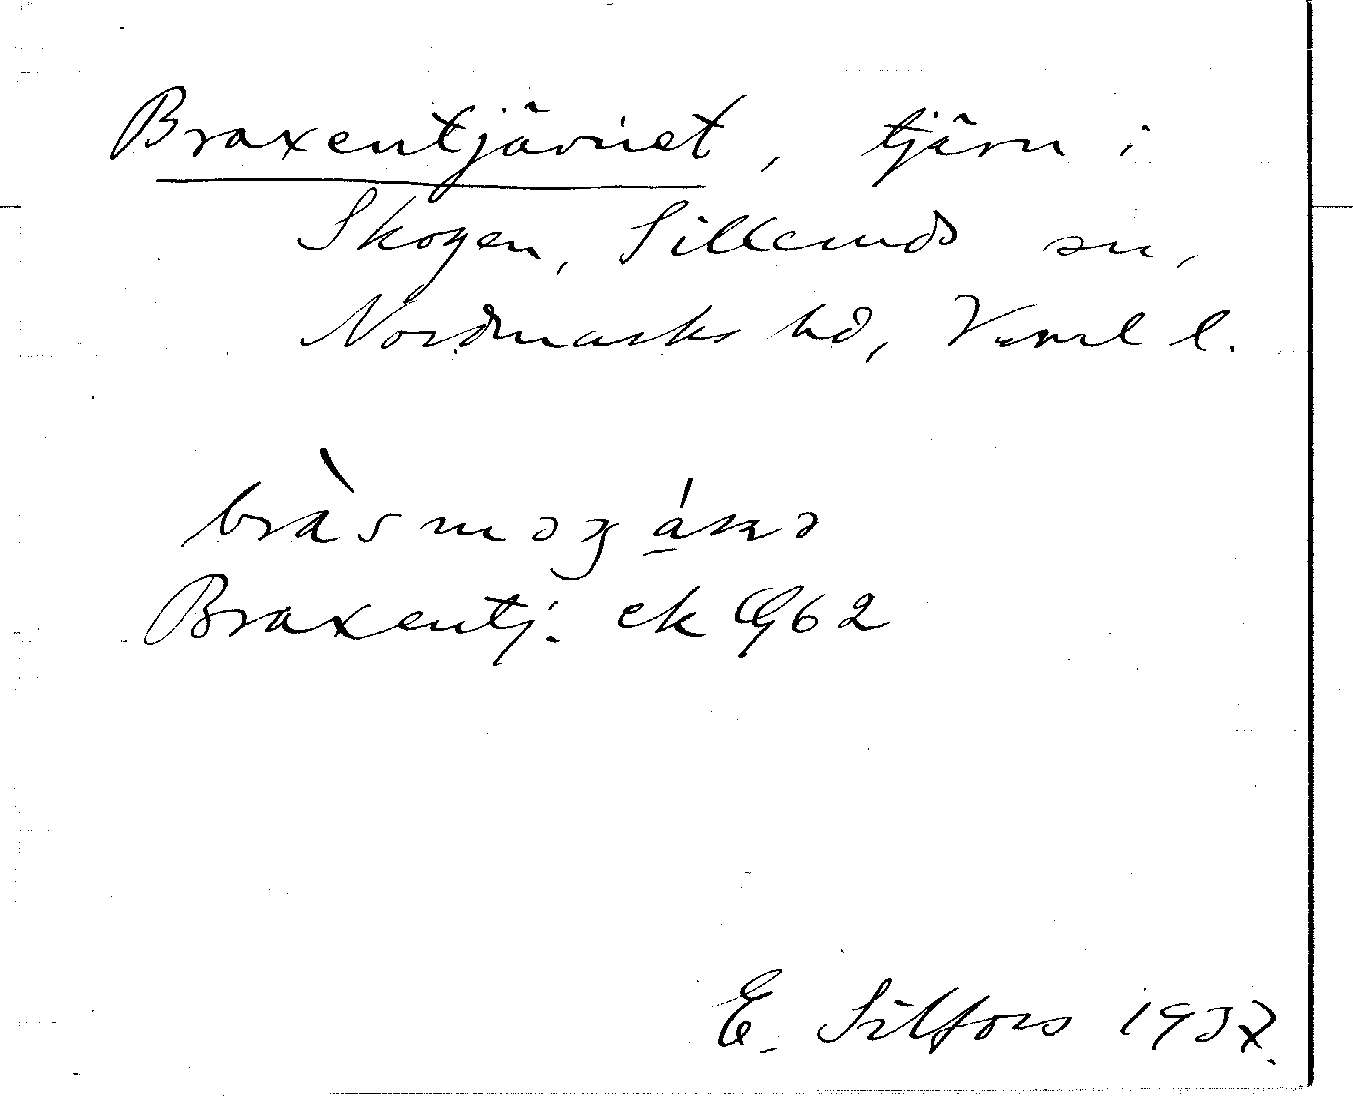 Braxentjärnet, tjärn i
Skogen, Sillerud sn,
Nordmarks hd, Verml l.
Braxentj. ek Gg 62
E. Silfors 1937.